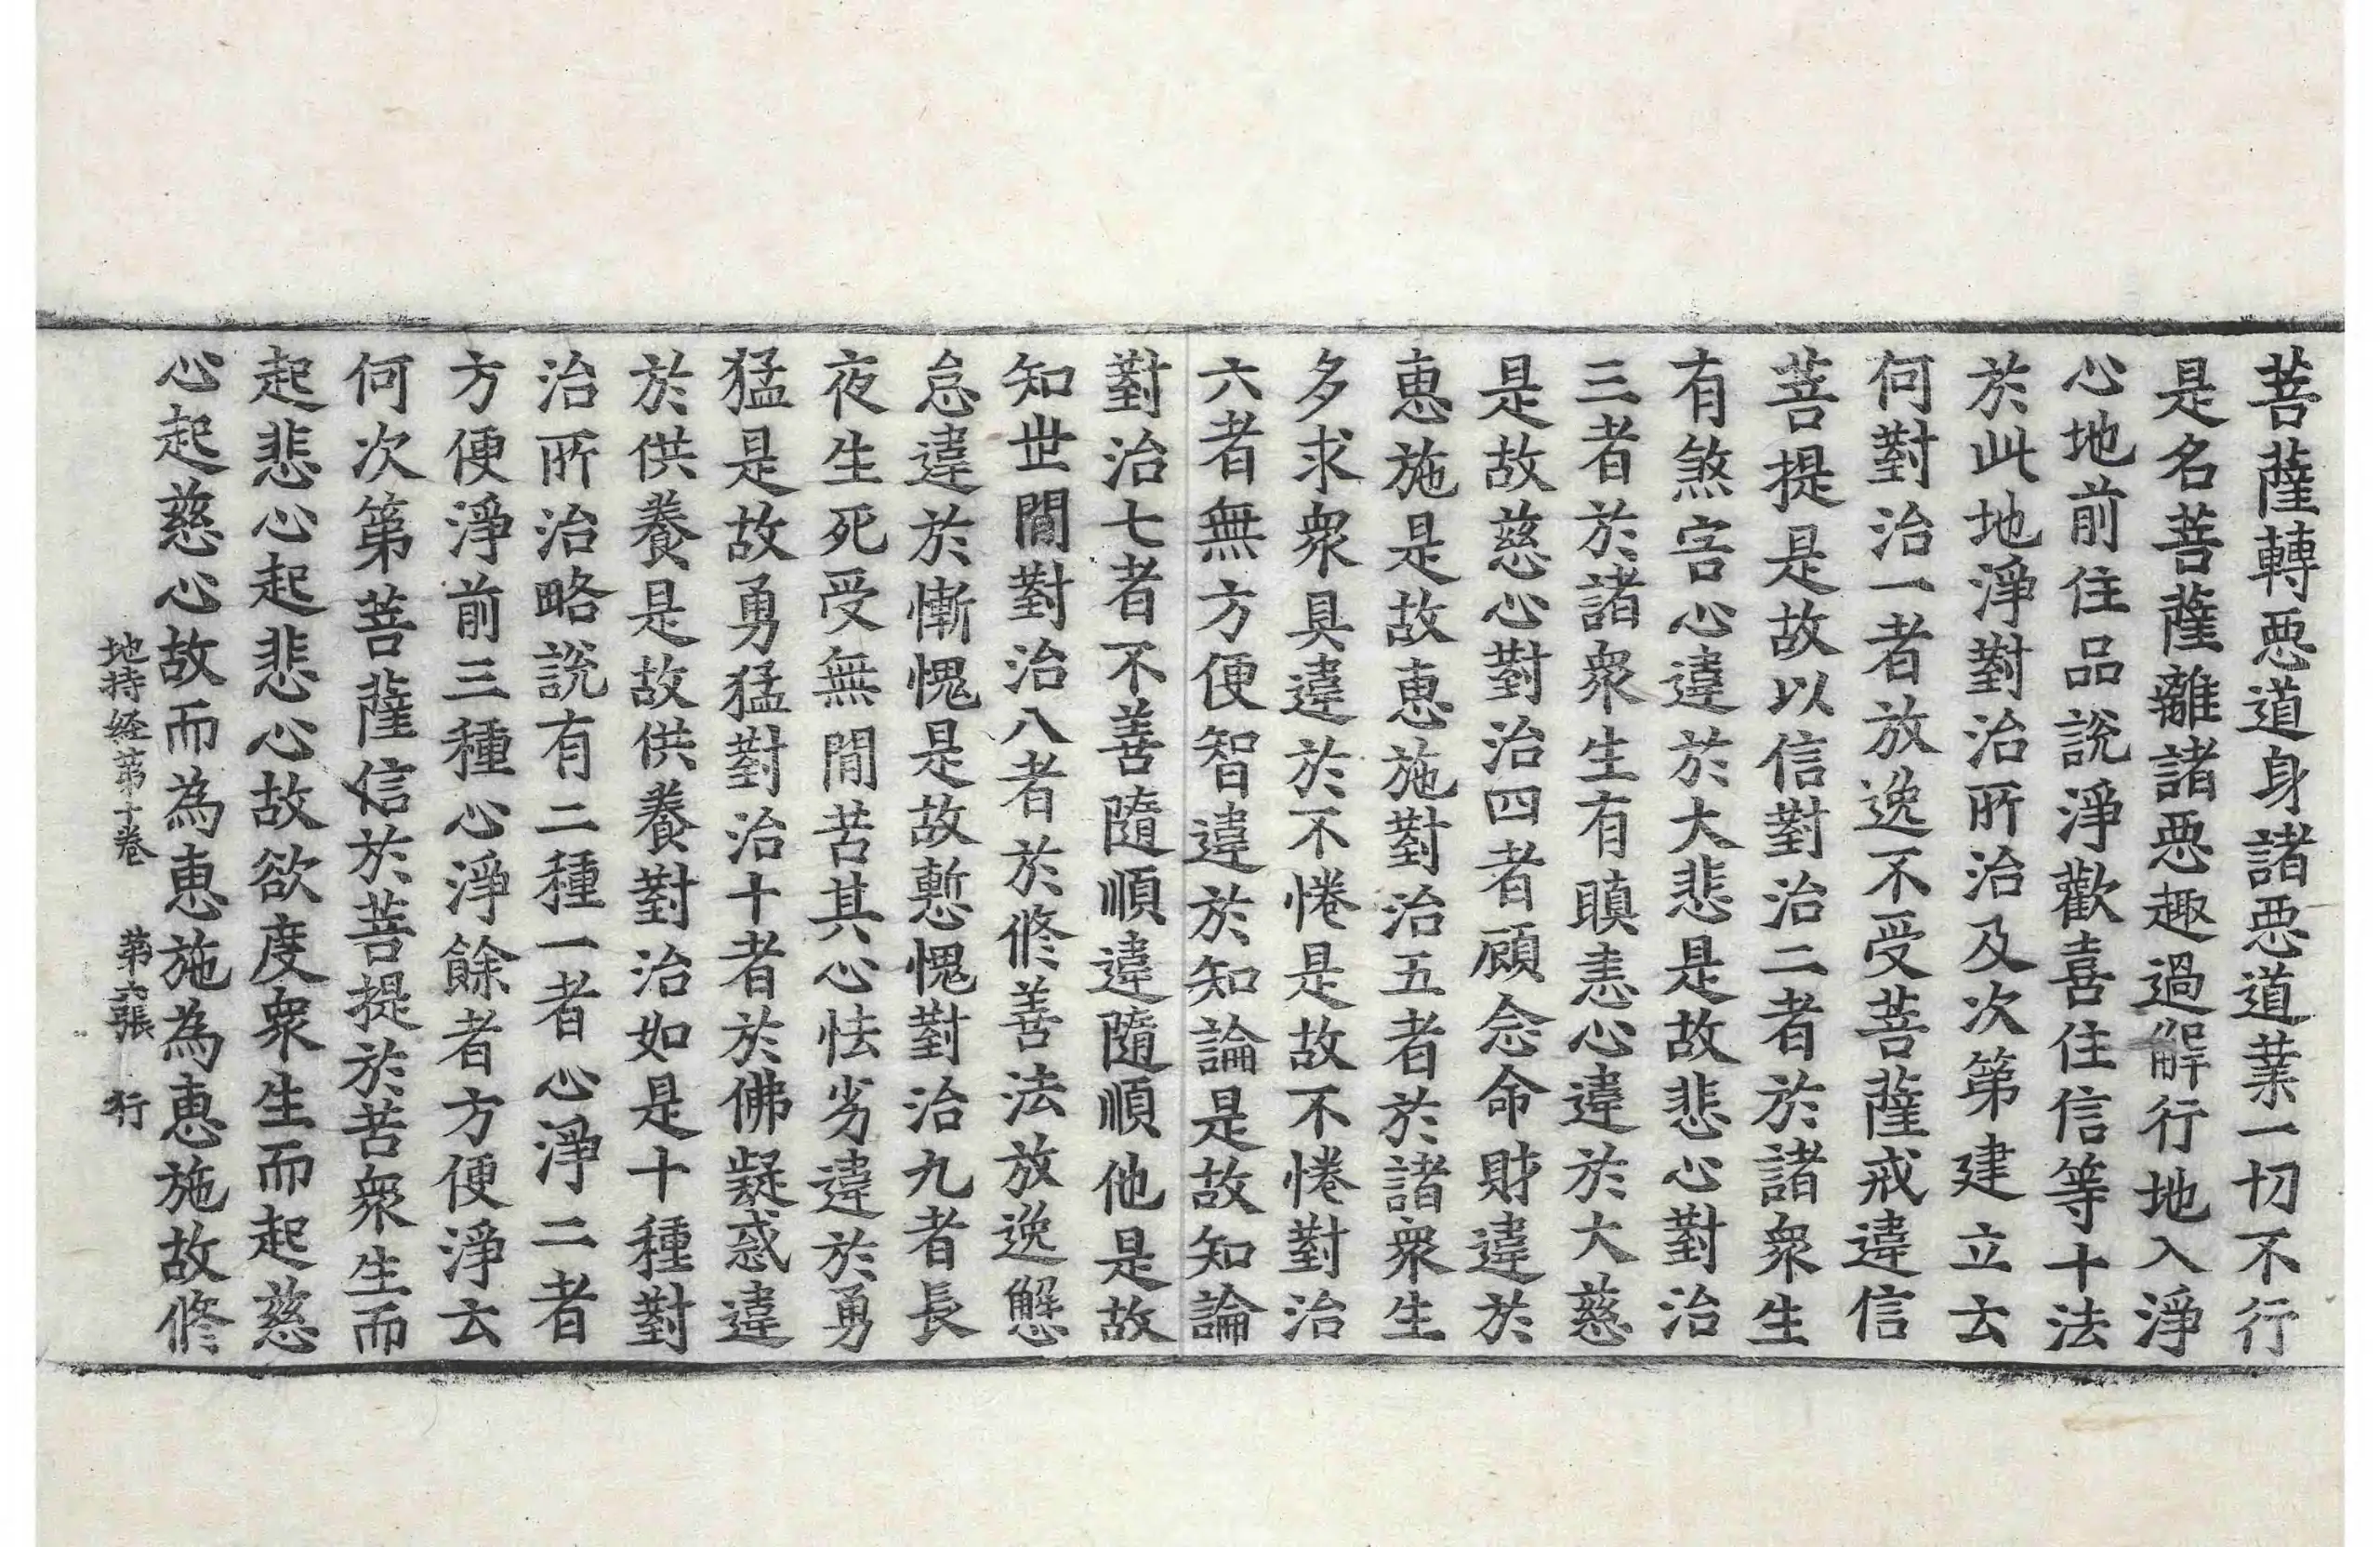 菩薩轉惡道身諸惡道業一切不行
是名菩薩離諸惡趣過解行地入淨
心地前住品說淨歡喜住信等十法
於此地淨對治所治及次第建立云
何對治一者放逸不受菩薩戒違信
菩提是故以信對治二者於諸衆生
有煞害心違於大悲是故悲心對治
三者於諸衆生有瞋恚心違於大慈
是故慈心對治四者顧念命財違於
惠施是故惠施對治五者於諸衆生
多求衆具違於不惓是故不惓對治
六者無方便智違於知論是故知論
對治七者不善隨順違隨順他是故
知世間對治八者於修善法放逸懈
怠違於慚愧是故慙愧對治九者長
夜生死受無間苦其心怯劣違於勇
猛是故勇猛對治十者於佛疑惑違
於供養是故供養對治如是十種對
治所治略說有二種一者心淨二者
方便淨前三種心淨餘者方便淨云
何次第菩薩信於菩提於苦衆生而
起悲心起悲心故欲度衆生而起慈
心起慈心故而為惠施為惠施故修
地持经第十卷 第六張 行